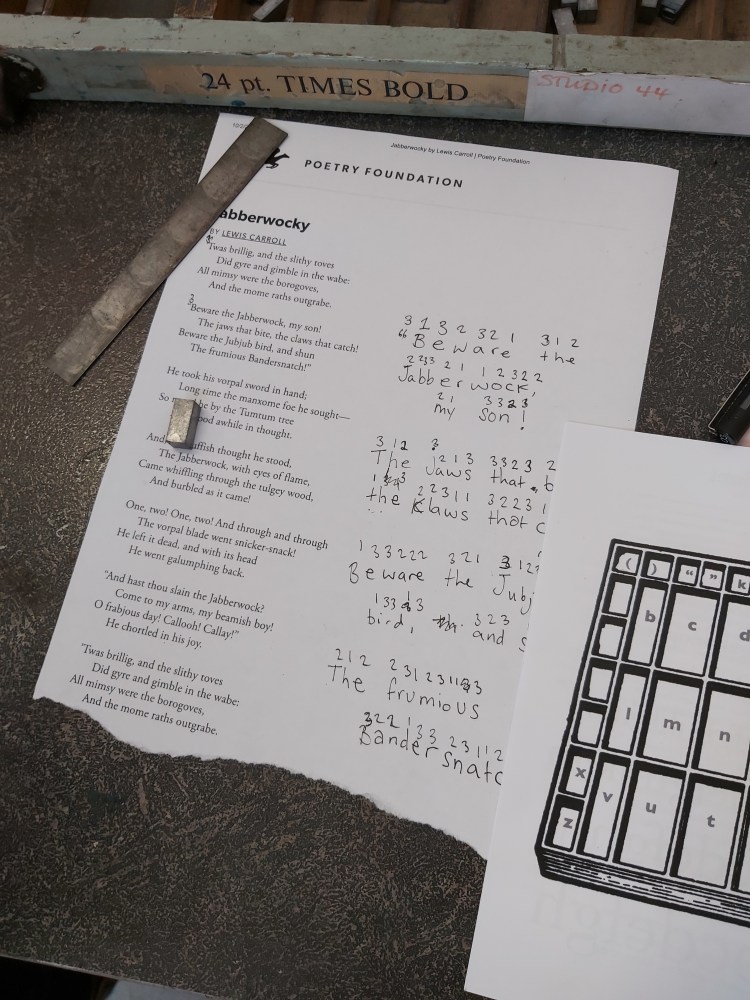 24 pt. TIMES BOLD
STUDIO 44.
Jabberwocky by Lewis Carroll | Poetry Foundation
POETRY FOUNDATION
abberwocky
BY LEWIS CARROLL
'Twas brillig, and the slithy toves
Did gyre and gimble in the wabe:
All mimsy were the borogoves,
And the mome raths outgrabe.
"Beware the Jabberwock, my son!
The jaws that bite, the claws that catch!
Beware the Jubjub bird, and shun
The frumious Bandersnatch!"
He took his vorpal sword in hand;
Long time the manxome foe he sought—
So he by the Tumtum tree
ood awhile in thought.
And, uffish thought he stood,
The Jabberwock, with eyes of flame,
Came whiffling through the tulgey wood,
And burbled as it came!
One, two! One, two! And through and through
The vorpal blade went snicker-snack!
He left it dead, and with its head
He went galumphing back.
"And hast thou slain the Jabberwock?
Come to my arms, my beamish boy!
O frabjous day! Callooh! Callay!"
He chortled in his joy.
'Twas brillig, and the slithy toves
Did gyre and gimble in the wabe:
All mimsy were the borogoves,
And the mome raths outgrabe.
3 1 3 2 3 2 1 3 1 2
"Beware the
2 2 3 3 2 1 1 2 3 2 2
Jabberwock,
2 1 3 3 2 3
my son!
3 1 2 3 2 1 3 3 3 2 3 2
The Jaws that b
2 2 3 1 1 3 2 2 3 1
the Klaws that c
1 3 3 2 2 2 3 2 1 3 1 2
Beware the Jubj
1 3 3 3 3 2 3
bird, and s
2 1 2 2 3 1 2 3 1 1 3 3
The frumious
3 2 2 1 3 3 2 3 1 1 2
Bandersnatc
( ) " " k
b c d
l m n
x v u t
z